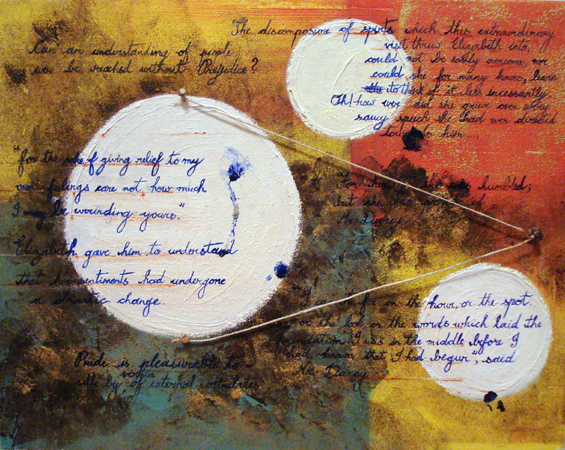 Can an understanding of people
be reached without Prejudice?
The discomposure of spirits which this extraordinary
visit threw Elizabeth into,
could not be easily overcome, nor
could she for many hours, learn
to think of it less incessantly.
Oh! how did she grieve over every
saucy speech she had ever directed
him
"for the sake of giving relief to my
own feelings care not how much
I may be wounding yours."
Elizabeth gave him to understand
that her sentiments had undergone
a drastic change.
humbled,
but she was proud of
Mr. Darcy
on the hour, or the spot,
or the look or the words which laid the
foundation. I was in the middle before I
had known that I had begun", said
Mr. Darcy
Pride is pleasurable to
by of external